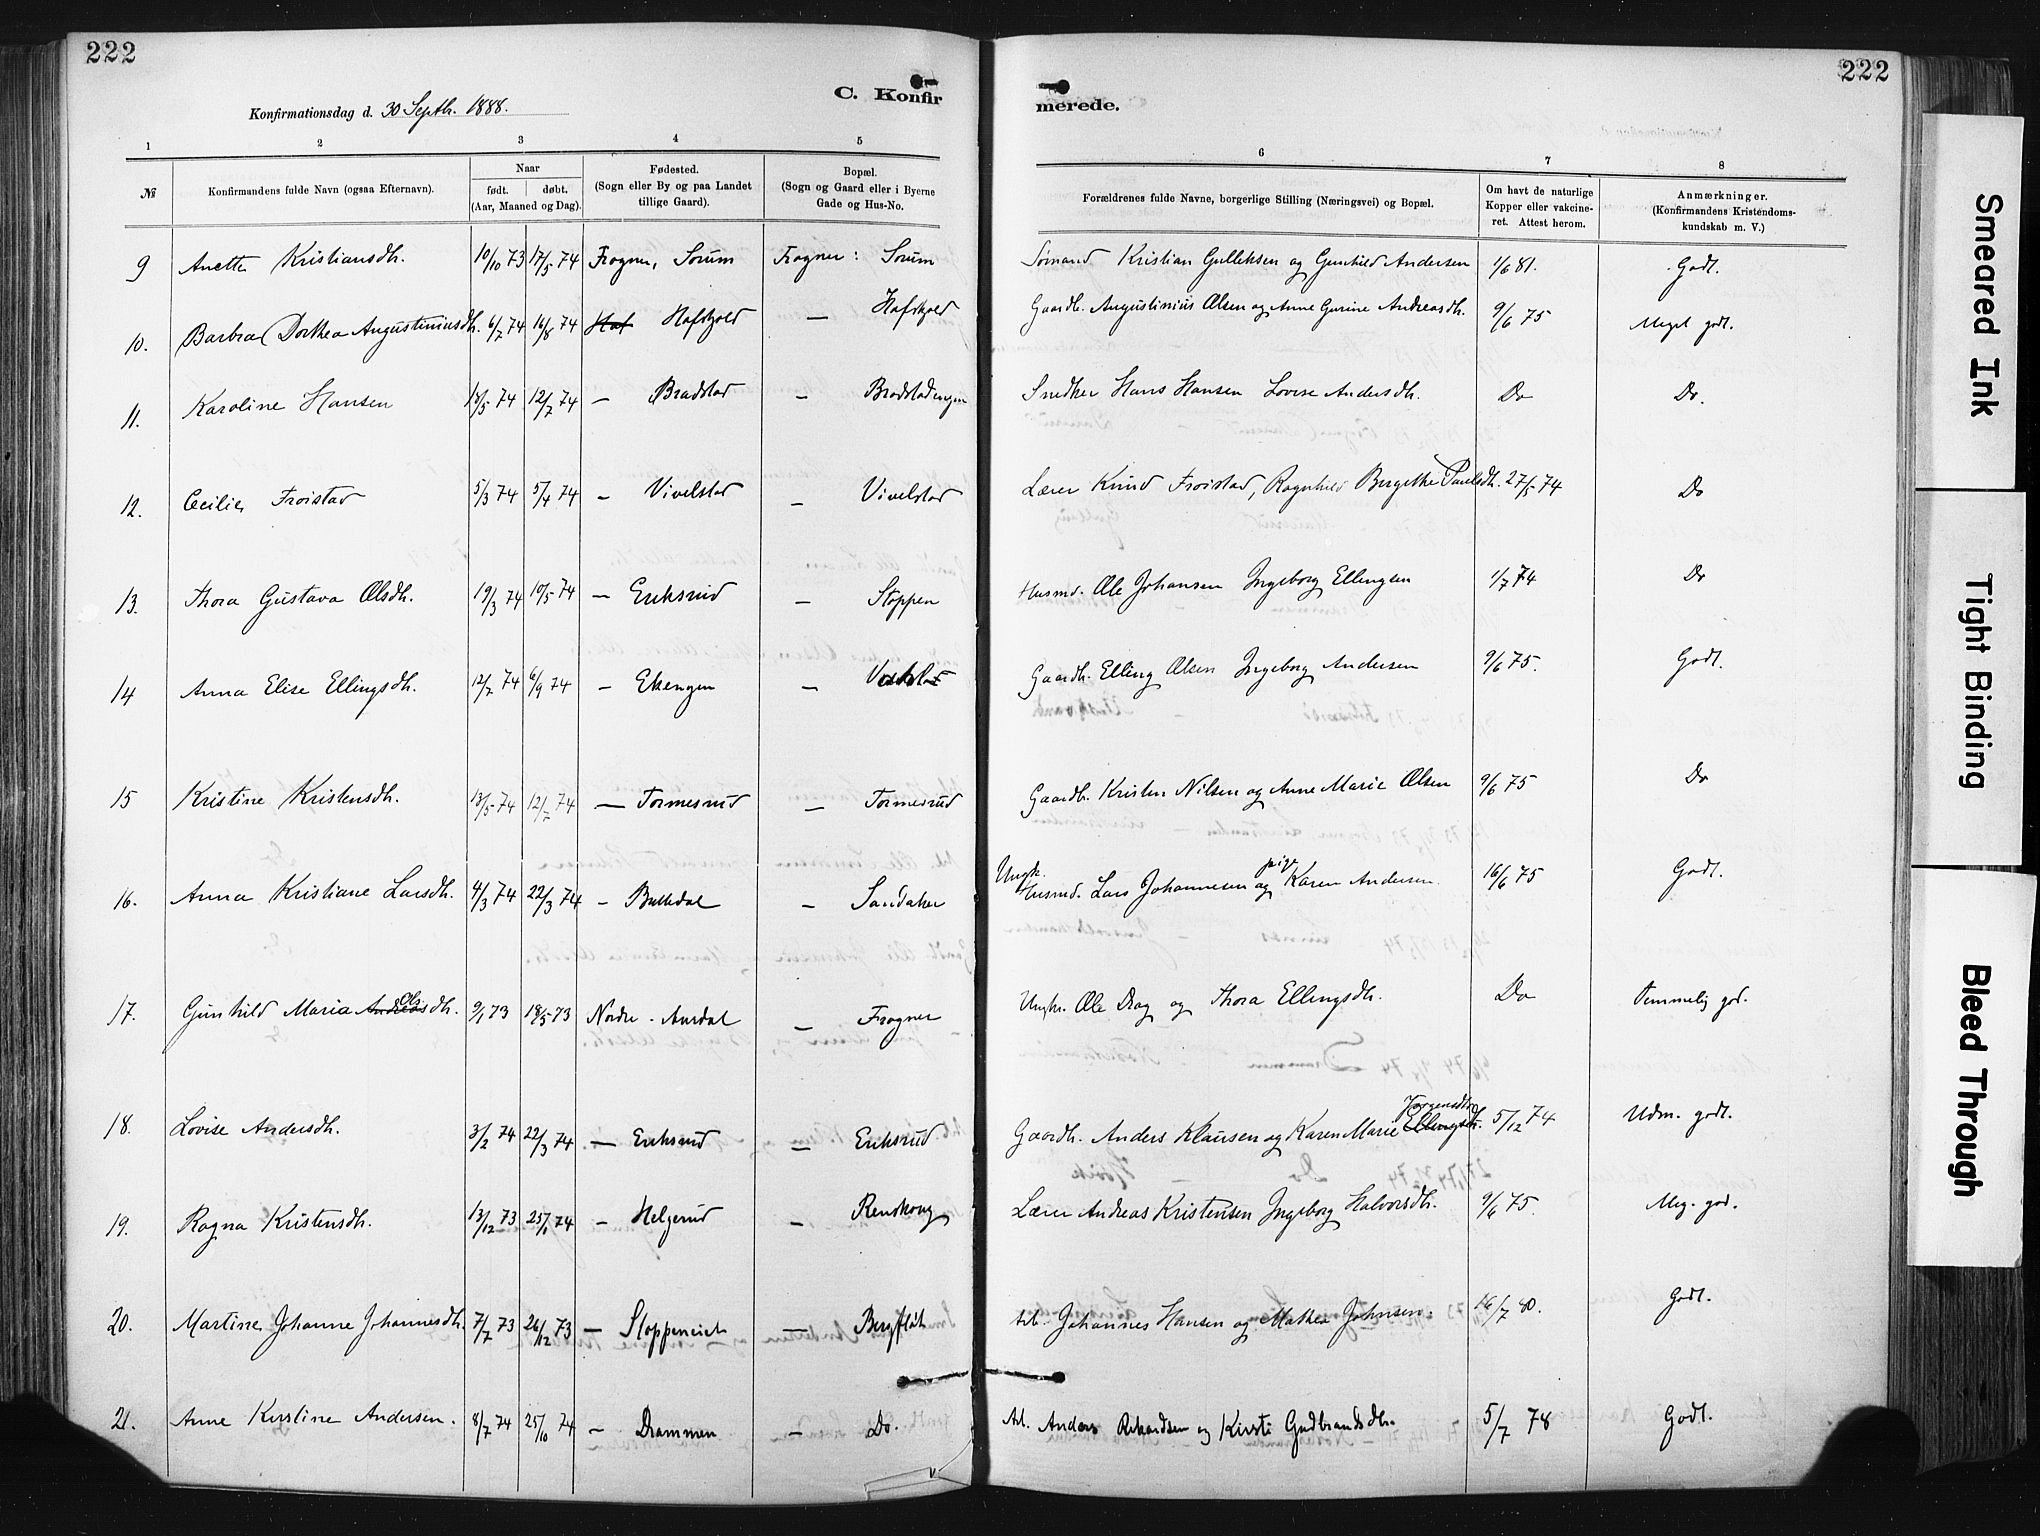 222
222
C. Konfir
merede.
Konfirmationsdag d. 30 Septb. 1888.
1 2 3 4 5 6 7 8
№
Konfirmandens fulde Navn (ogsaa Efternavn).
Naar
født. døbt.
(Aar, Maaned og Dag).
Fødested.
(Sogn eller By og paa Landet
tillige Gaard).
Bopæl.
(Sogn og Gaard eller i Byerne
Gade og Hus-No.
Forældrenes fulde Navne, borgerlige Stilling (Næringsvei) og Bopæl.
Om havt de naturlige
Kopper eller vakcine-
ret. Attest herom.
Anmærkninger.
(Konfirmandens Kristendoms-
kundskab m. V.)
9 Anette Kristiansdh. 10/10 73 17/5 74 Frogner, Sørum Frogner: Sørum Sømand Kristian Gulleksen og Gunhild Andersen 1/6 81. Godt.
10. Barbra Dorthea Augustiniusdh. 6/7 74 16/8 74 Hafskjold — Hafskjold Gaardb. Augustinius Olsen og Anne Gurine Andreasdh. 9/6 75 Meget godt.
11. Karoline Hansen 18/5 74 12/7 74 — Bradstad — Bradstadengen Snedker Hans Hansen Lovise Andersdh. Do Do.
12. Cecilie Froistad 5/3 74 5/4 74 — Vivelstad — Vivelstad Lærer Knud Froistad, Ragnhild Bergethe Paulsdh. 27/5 74 Do
13. Thora Gustava Olsdh. 19/3 74 10/5 74 — Eriksrud — Stoppen Husmd. Ole Johansen Ingeborg Ellingsen 1/7 74 Do
14 Anna Elise Ellingsdh. 12/7 74 6/9 74 — Ekengen — Gaardb. Elling Olsen Ingeborg Andersen 9/6 75. Godt.
15 Kristine Kristensdh. 13/5 74 12/7 74 — Tormesrud — Tormesrud Gaardb. Kristen Nilsen og Anne Marie Olsen 9/6 75 Do
16. Anna Kristiane Larsdh. 4/3 74 22/3 74 — Bulkdal — Sandaker Ungk. Husmd. Lars Johannesen og pige Karen Andersen 16/6 75 Godt.
17. Gunhild Maria Andreas Olsdh. 9/1 73 18/5 73 Nordre-Aurdal — Frogner Ungkr. Ole Drag og Thora Ellingsdh. Do Temmelig god.
18. Lovise Andersdh. 3/2 74 22/3 74 — Eriksrud — Eriksrud Gaardb. Anders Klausen og Karen Marie Ellingsdh. Jørgensdtr 5/12 74 Udm. godt.
19. Ragna Kristensdh. 13/12 73 25/1 74 — Helgerud — Renskoug Lærer Andreas Kristensen Ingeborg Halvorsdh. 9/6 75. Meg. god.
20. Martine Johanne Johannesdh. 7/7 73 26/12 73 — Stoppeneiet — Bergflat Arb. Johannes Hansen og Mathea Johnsen. 16/7 80. Godt.
21. Anne Kirstine Andersen. 8/7 74 25/10 74 — Drammen — Do. Arb. Anders Rikardsen og Kirsti Gudbrandsdh. 5/7 78 Godt.
Smeared Ink
Tight Binding
Bleed Through